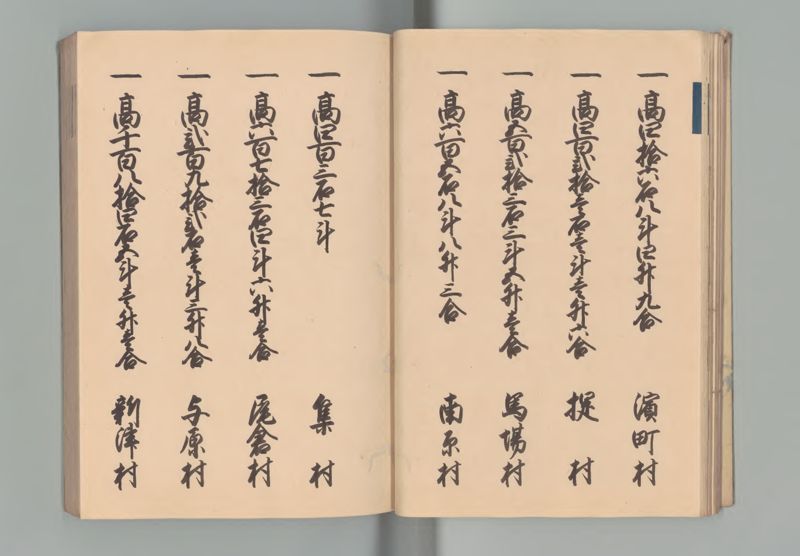 一高四拾六石八斗四升九合 濱町村
一高四百弐拾壱石壱斗壱升六合 提村
一高五百弐拾三石三斗五升壱合 馬場村
一高六百五石八斗八升三合 南原村
一高四百三石七斗 集村
一高六百七拾三石四斗六升壱合 尾倉村
一高弐百九拾弐石壱斗三升八合 与原村
一高千百八拾四石五斗壱升壱合 新津村